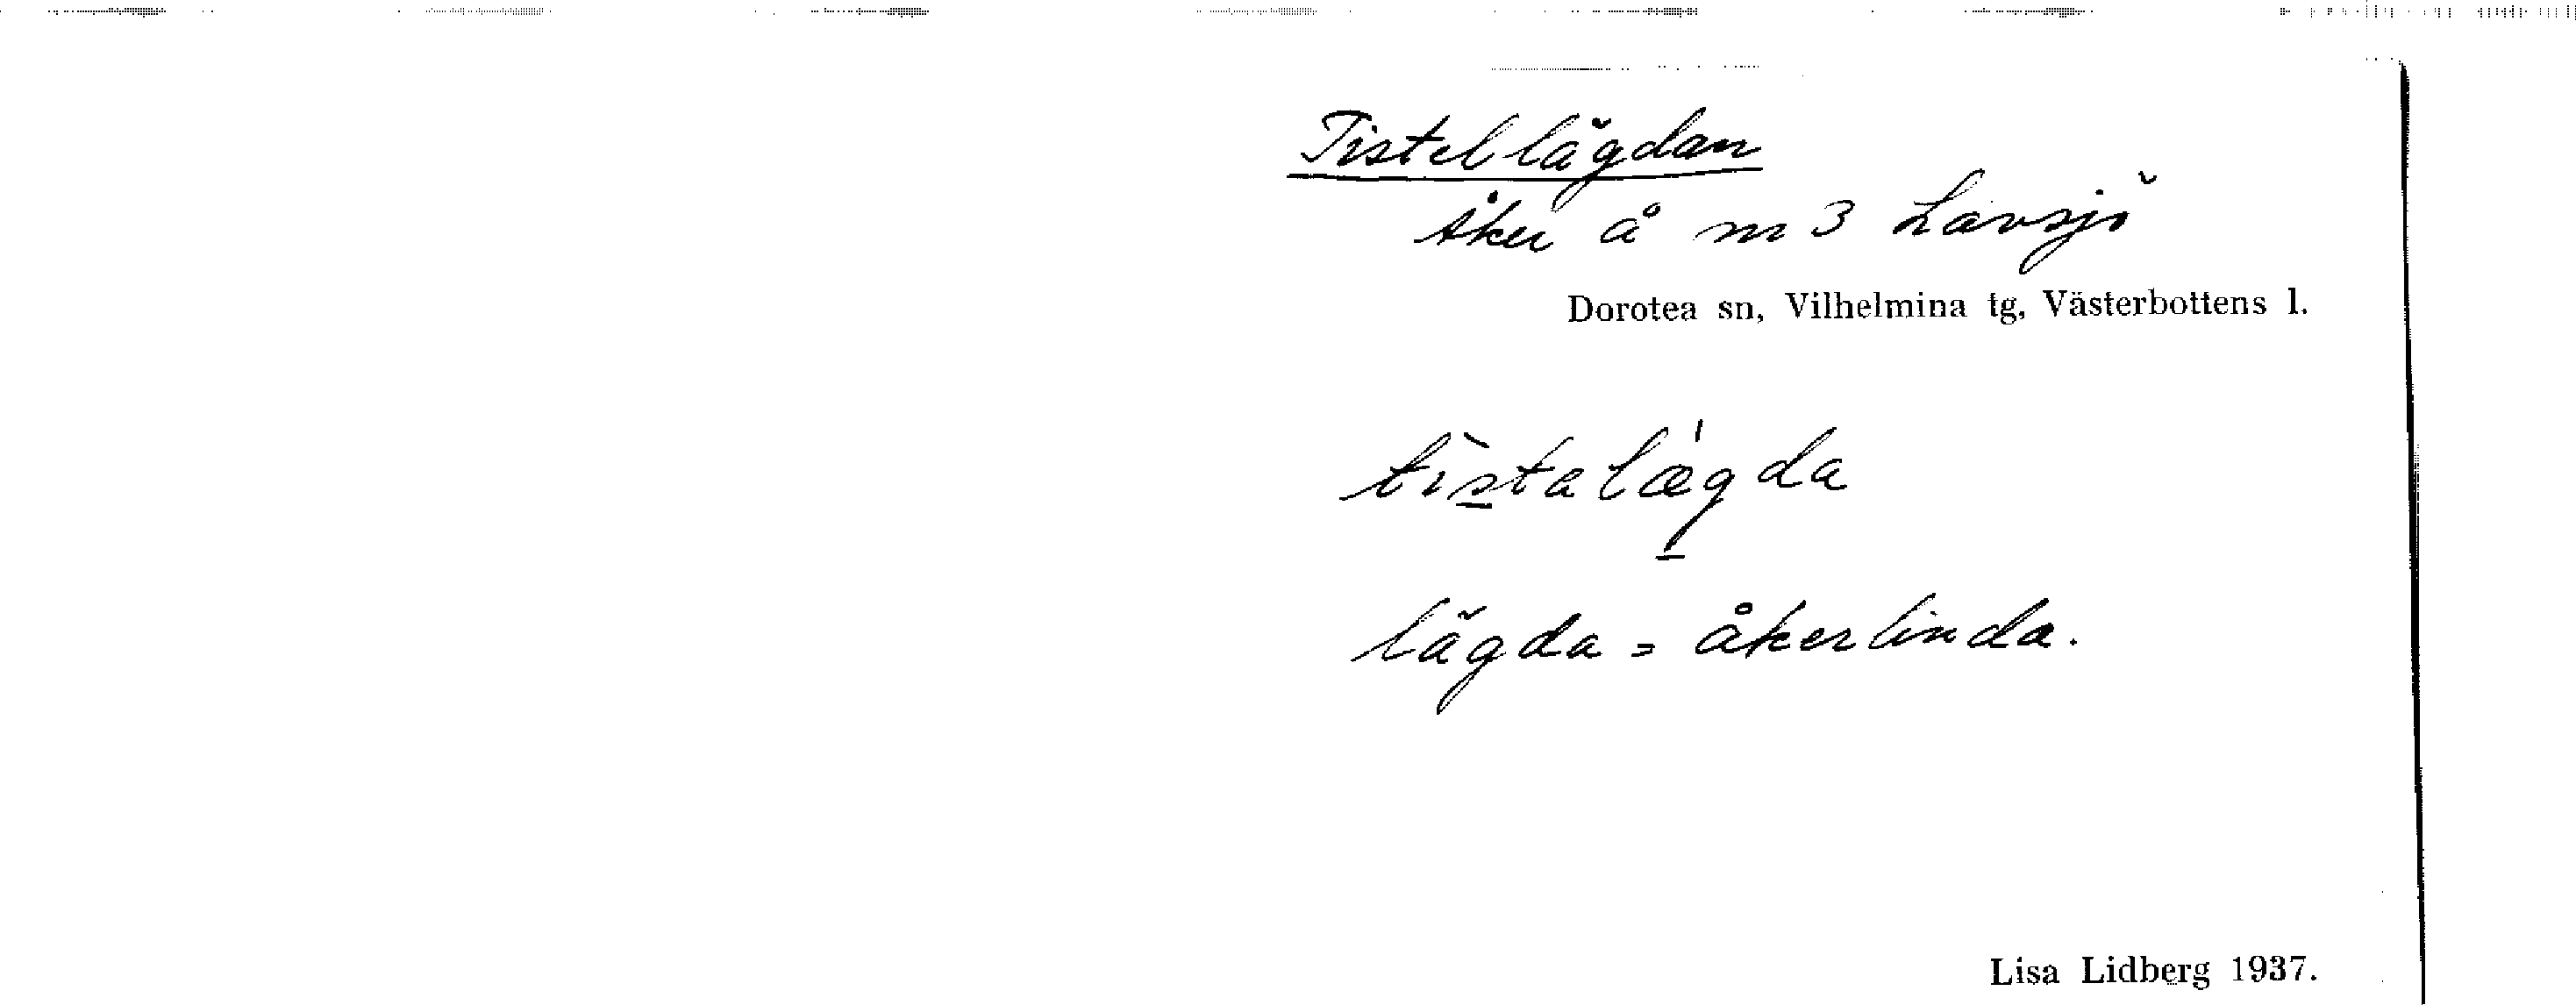 Tistellägdan
Åker å m 3 Lavsjö
Dorotea sn, Vilhelmina tg, Västerbottens l.
tìstalæ̍gda
lägda = åkerlinda.
Lisa Lidberg 1937.